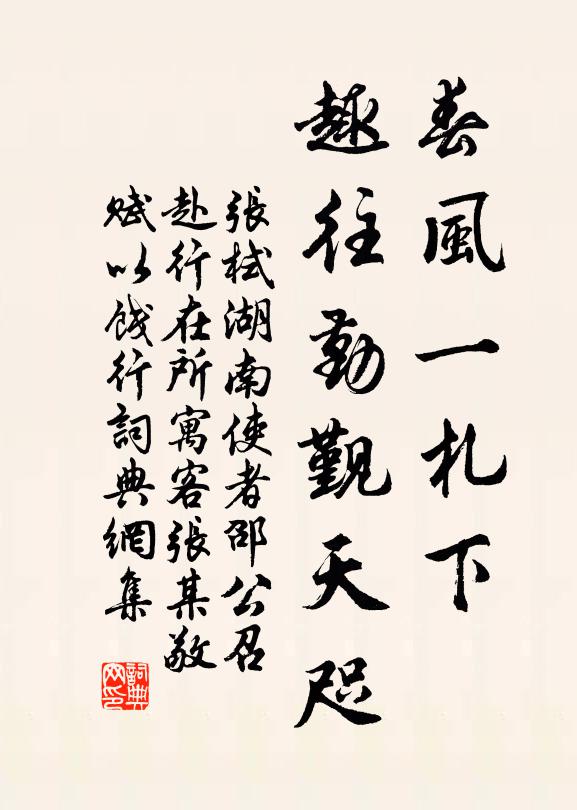 春風一札下
趣往勤觀天咫
張栻湖南使者邵公召
赴行在所寓客張某敬
賦以餞行詞典網集
詞典網印